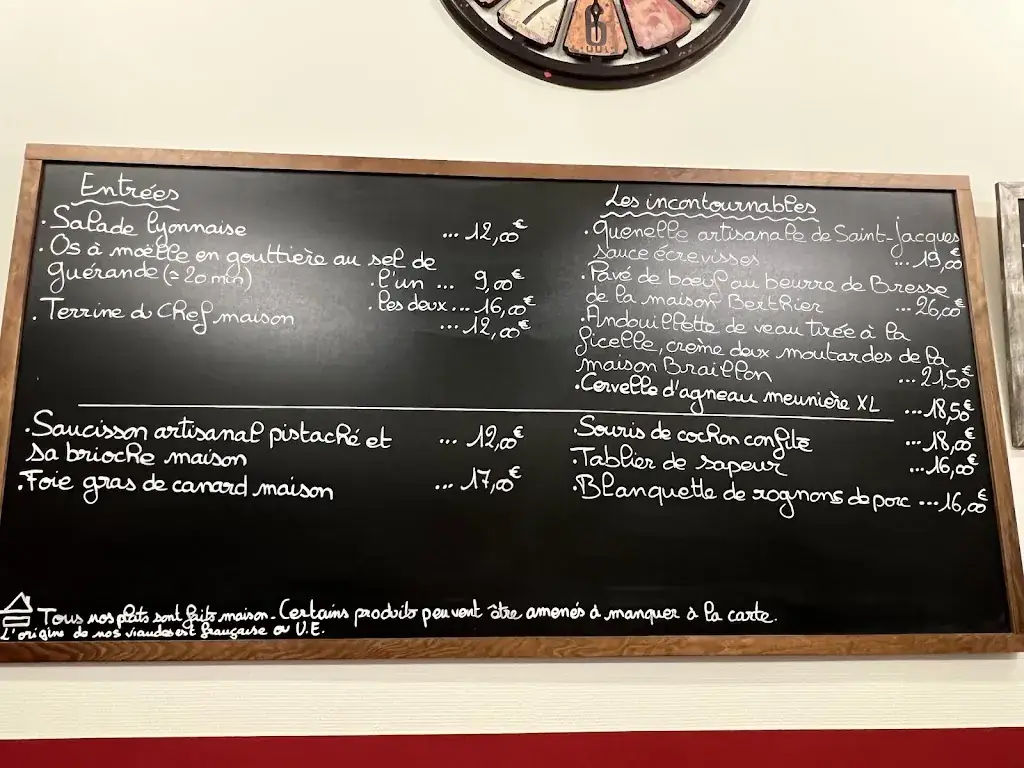 6
Entrées
· Salade lyonnaise ... 12,00€
· Os à moëlle en gouttière au sel de
guérande (≈ 20 min) · l'un ... 9,00€
· les deux ... 16,00€
· Terrine du Chef maison ... 12,00€
· Saucisson artisanal pistaché et ... 12,00€
sa brioche maison
· Foie gras de canard maison ... 17,00€
Les incontournables
· Quenelle artisanale de Saint-Jacques
sauce écrevisses ... 19,00€
· Pavé de boeuf au beurre de Bresse
de la maison Berthier ... 26,00€
· Andouillette de veau tirée à la
ficelle, crème deux moutardes de la
maison Braillon ... 21,50€
· Cervelle d'agneau meunière XL ... 18,50€
· Souris de cochon confite ... 18,00€
· Tablier de sapeur ... 16,00€
· Blanquette de rognons de porc ... 16,00€
Tous nos plats sont faits maison - Certains produits peuvent être amenés à manquer à la carte.
L'origine de nos viandes est française ou U.E.